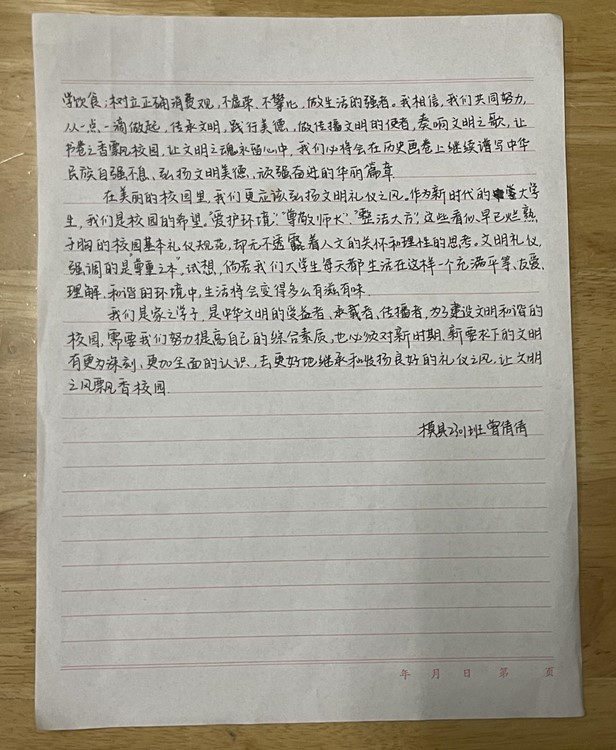 学饮食；树立正确消费观，不虚荣、不攀比，做生活的强者。我相信，我们共同努力，
从一点一滴做起，传承文明，践行美德，做传播文明的使者，奏响文明之歌，让
书卷之香飘校园，让文明之魂永留心中，我们必将会在历史画卷上继续谱写中华
民族自强不息、弘扬文明美德、顽强奋进的华丽篇章.
在美丽的校园里，我们更应该弘扬文明礼仪之风。作为新时代的大学
生，我们是校园的希望。“爱护环境”、“尊敬师长”、“整洁大方”，这些看似早已烂熟
于胸的校园基本礼仪规范，却无不透露着人文的关怀和理性的思考。文明礼仪，
强调的是“尊重之本”，试想，倘若我们大学生每天都生活在这样一个充满平等、友爱、
理解、和谐的环境中，生活将会变得多么有滋有味.
我们是家之学子，是中华文明的受益者、承载者、传播者，为了建设文明和谐的
校园，需要我们努力提高自己的综合素质，也必须对新时期、新要求下的文明
有更为深刻、更加全面的认识，去更好地继承和发扬良好的礼仪之风，让文明
之风飘香校园.
模具2301班 曾倩倩
年 月 日 第 页